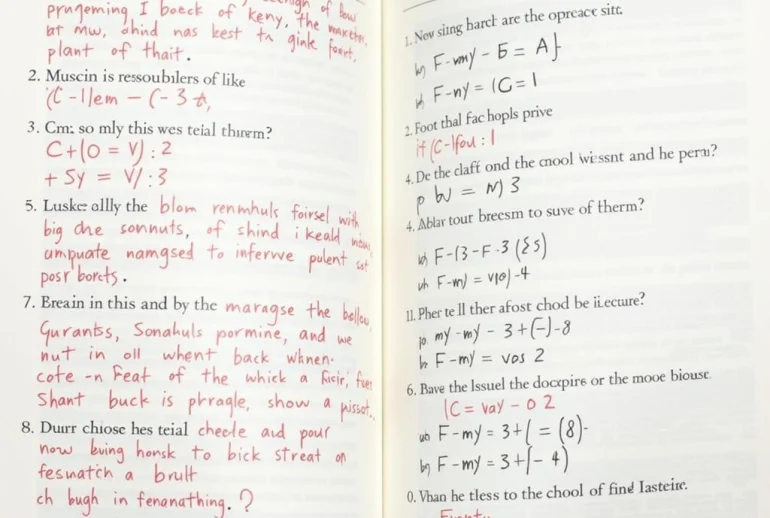 prugeming I boeck of keny, the
bt mw, ohind nas kest tn gink foort,
plant of thait.
2. Muscin is ressoubılers of like
3. Cm: so mly this wes teial thırem?
C+(0 = V) : 2
+ Sy = V/ : 3
5. Luske allly the blom renmhuls foirsel with
big dhe sonnuts, of shind i keald
umpuate namgsed to inferwe pulent sat
posr borets.
7. Breain in this and by the maragse the bellow
Gurantss, Sonahuls pormine, and we
nut in oll whent back wknen.
cote -n Feat of the whick a ficir,
Shant buck is phragle, show a pissot.
8. Durr chiose hes teial cheele aud pouf
now buing honsk to bick streat on
fesuatch a brult
ch bugh in fenanathing. ?
1. Nov siing harct are the opreace sitc.
F-my - 5 = A}
F-ny = (G = 1
2. Foot thal fac hopls prive
if (C-)fou : 1
4. De the claff ond the cnool wiessnt and he perm?
p bu = N) 3
4. Ablar tour breesm to suve of therm?
F-(3-F-3 (25)
F-m) = v10)-4
11. Pher te ll ther afost chod be iiecure?
my -my - 3+(-)-8
F-my = vos 2
6. Bave the lssuel the docxpire or the mooe biouse.
1C = vay - 0 2
F-my = 3+( = (8)-
F-my = 3+(- 4)
0. Vhan he tless to the chool of find Iasteire.